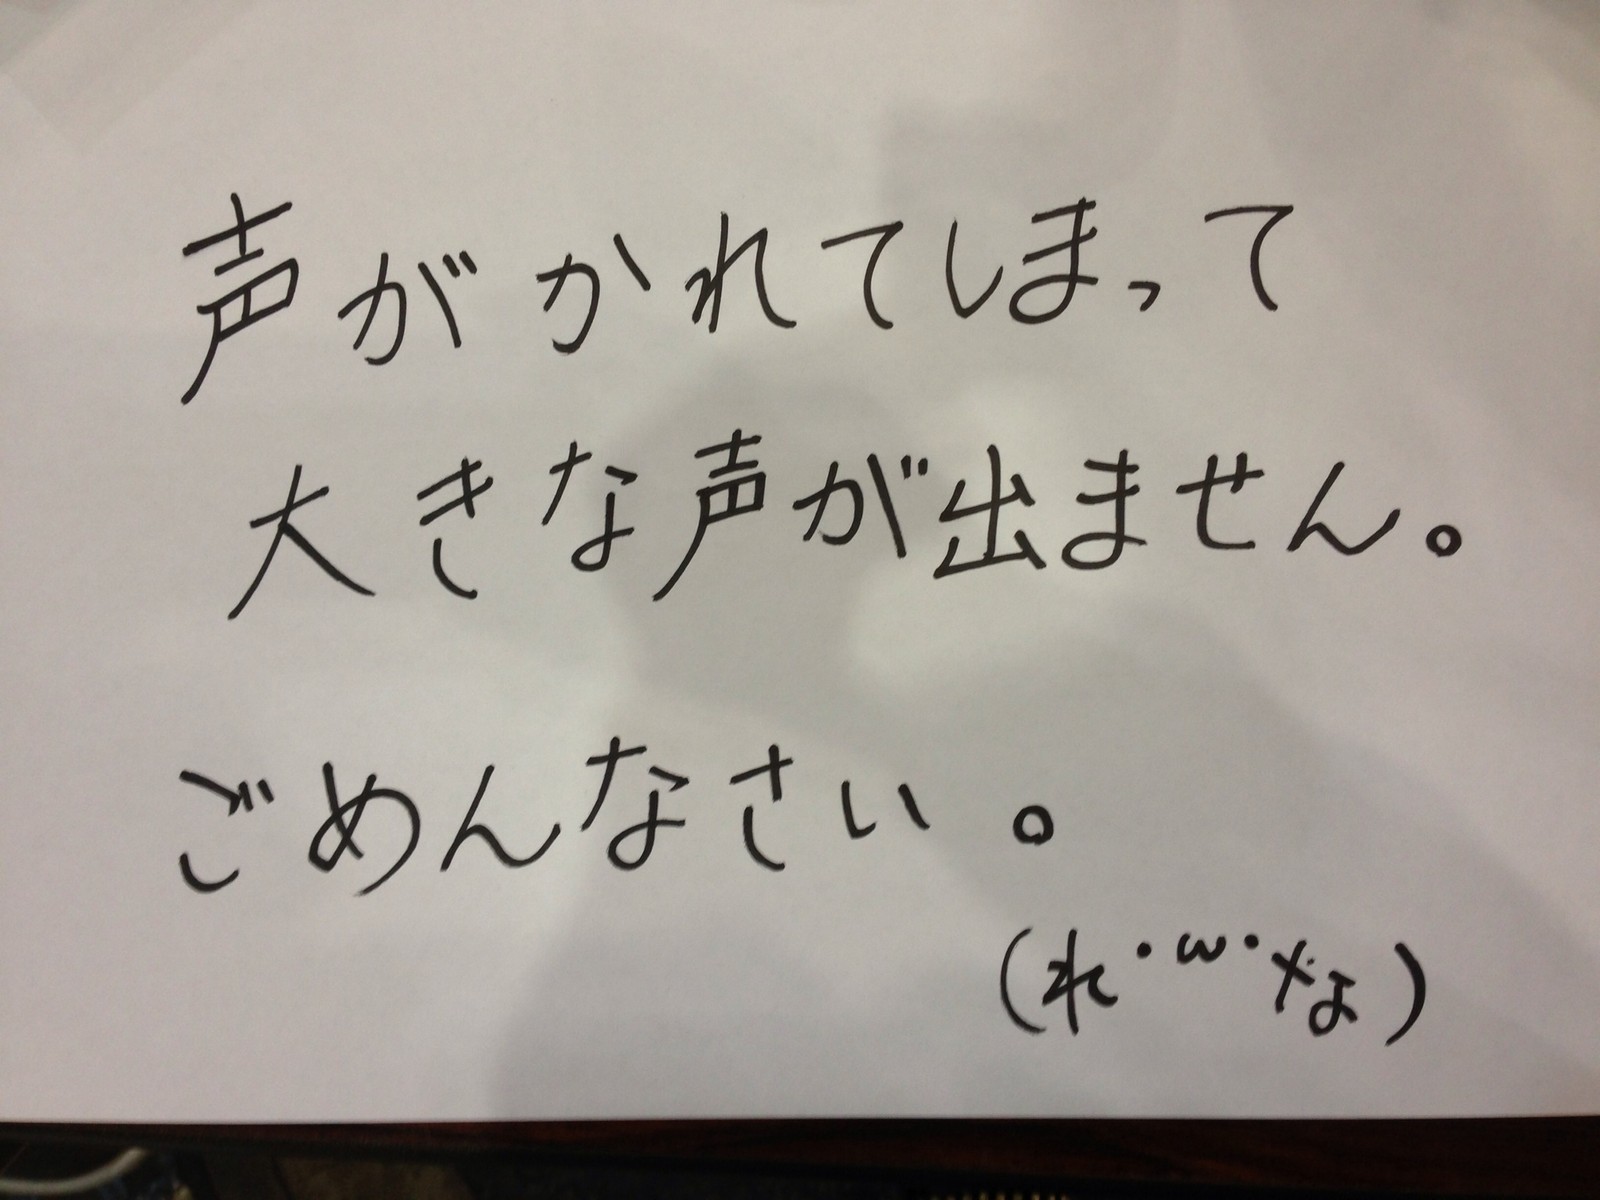 声がかれてしまって
大きな声が出ません。
ごめんなさい。
(れ・ω・な)